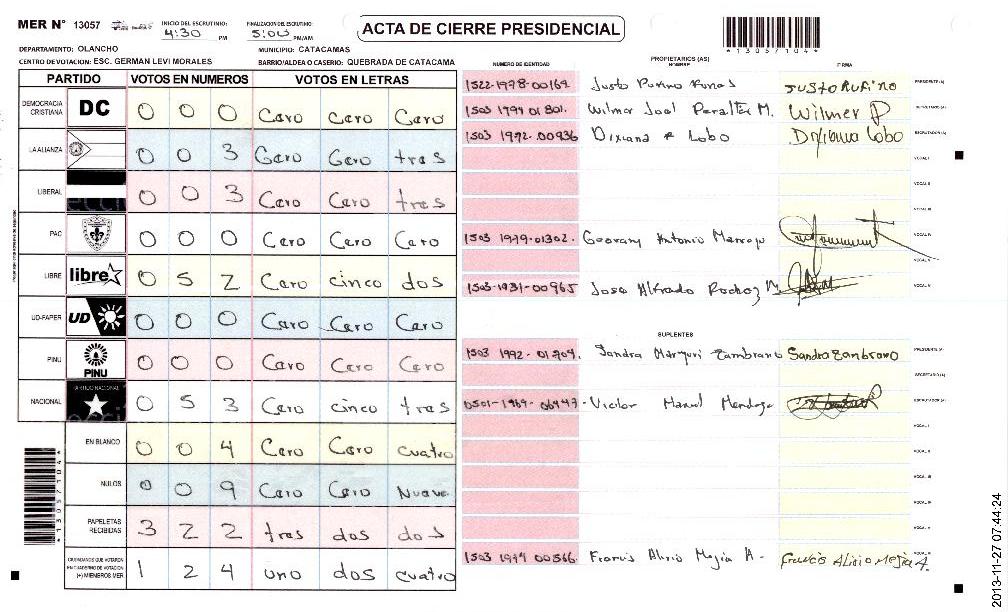 MER N° 13057 INICIO DEL ESCRUTINIO: 4:30 PM FINALIZACION DEL ESCRUTINIO: 5:00 PM/AM ACTA DE CIERRE PRESIDENCIAL
*13057104*
DEPARTAMENTO: OLANCHO MUNICIPIO: CATACAMAS
CENTRO DE VOTACION: ESC. GERMAN LEVI MORALES BARRIO/ALDEA O CASERIO: QUEBRADA DE CATACAMA
PARTIDO VOTOS EN NUMEROS VOTOS EN LETRAS
DEMOCRACIA CRISTIANA DC 0 0 0 Cero Cero Cero
LA ALIANZA 0 0 3 Cero Cero tres
LIBERAL 0 0 3 Cero Cero tres
PAC 0 0 0 Cero Cero Cero
LIBRE libre 0 5 2 Cero cinco dos
UD-FAPER UD 0 0 0 Cero Cero Cero
PINU PINU 0 0 0 Cero Cero Cero
NACIONAL PARTIDO NACIONAL 0 5 3 Cero cinco tres
EN BLANCO 0 0 4 Cero Cero cuatro
NULOS 0 0 9 Cero Cero Nueve
PAPELETAS RECIBIDAS 3 2 2 tres dos dos
CIUDADANOS QUE VOTARON EN CUADERNO DE VOTACION (+) MIEMBROS MER 1 2 4 uno dos cuatro
*13057104*
PROPIETARIOS (AS)
NUMERO DE IDENTIDAD NOMBRE FIRMA
1522-1978-00169 Justo Rufino Funes JUSTO RUFINO PRESIDENTE (A)
1503 1994 01801. Wilmer Joel Peralta M. Wilmer P SECRETARIO (A)
1503 1972-00936 Dixiana R Lobo Dixiana Lobo ESCRUTADOR (A)
VOCAL I
VOCAL II
VOCAL III
1503 1979-01302. Geovany Antonio VOCAL IV
VOCAL V
1503-1931-00965 Jose Alfredo M. VOCAL VI
SUPLENTES
1503 1992-01204. Sandra Zambrano Sandra Zambrano PRESIDENTE (A)
SECRETARIO (A)
0501-1969-06447 Victor Manuel Mendoza ESCRUTADOR (A)
VOCAL I
VOCAL II
VOCAL III
VOCAL IV
VOCAL V
1503 1974 00566. Francis Alirio Mejia A- Francis Alirio Mejia A. VOCAL VI
2013-11-27 07:44:24